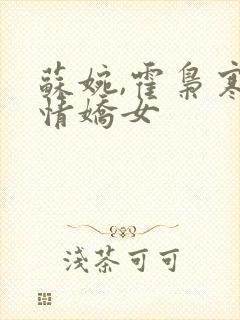 蘇婉,霍梟寒
情嬌女
淺茶可可